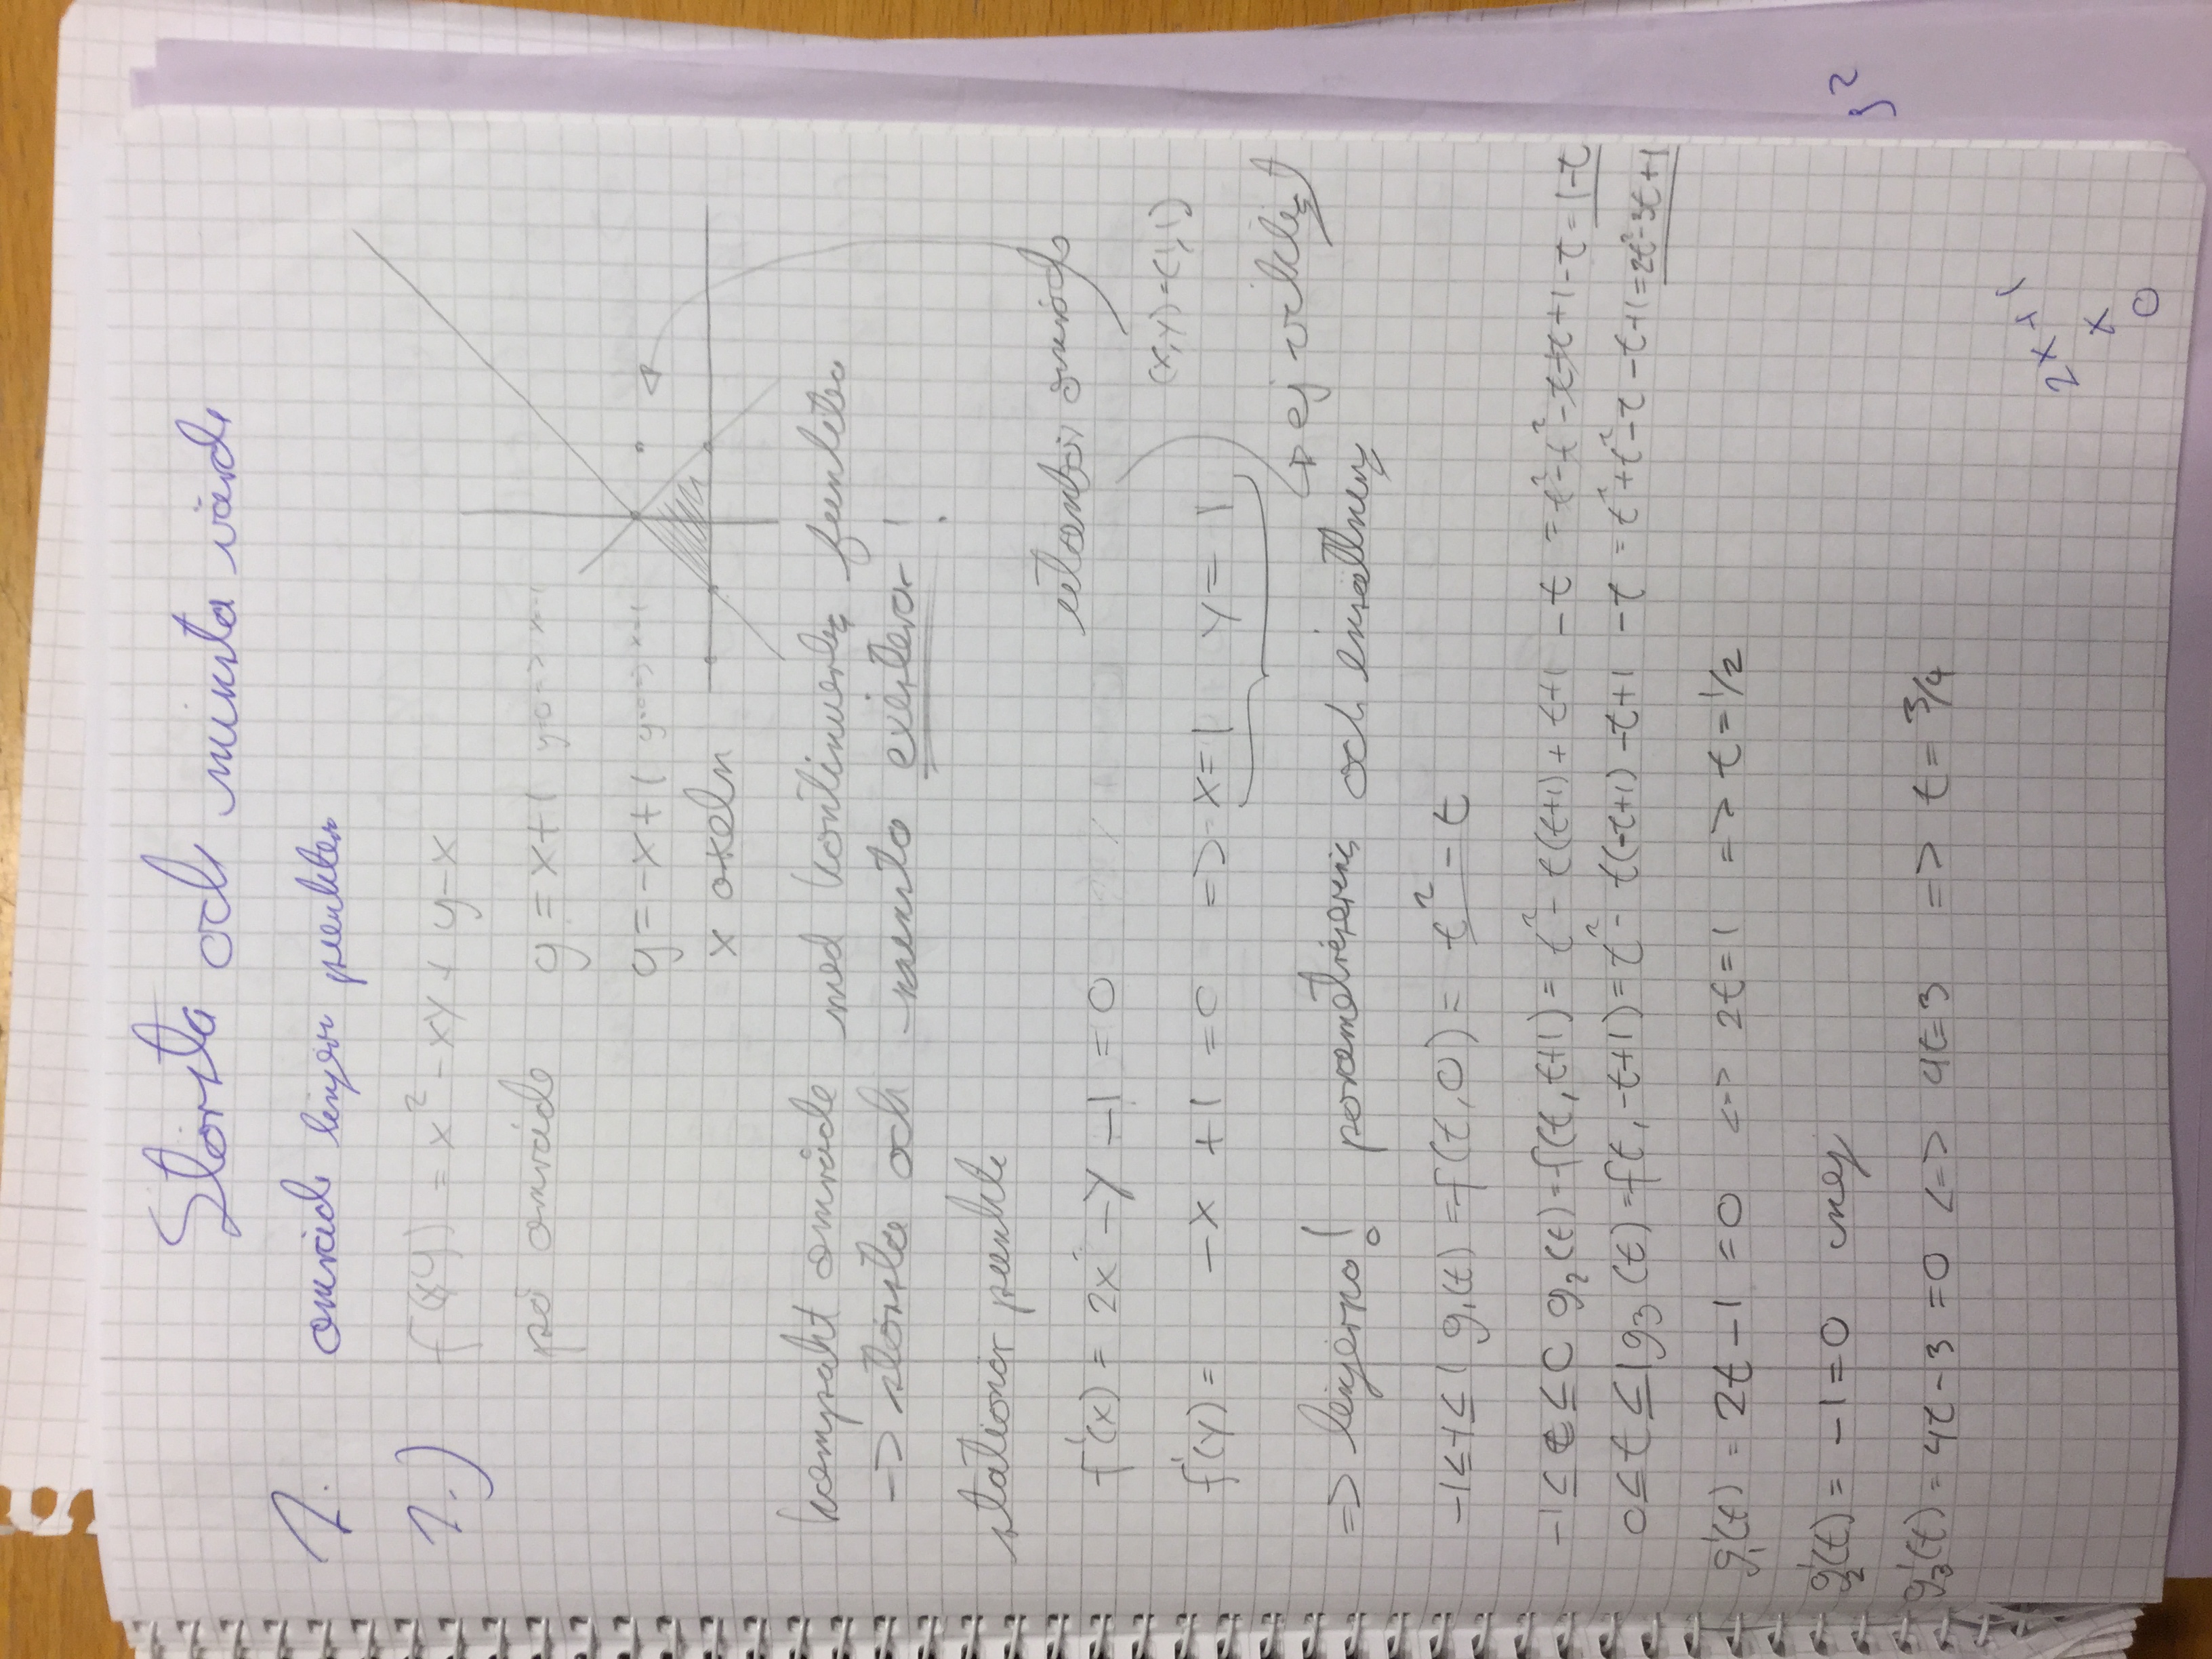 Största och minsta värde
1. område linjer punkter
1.) f(xy) = x² - xy + y - x
på område y = x+1 y=0 => x=-1
y = -x+1 y=0 => x=1
x axeln
kompakt område med kontinuerlig funktion
-> största och minsta existerar!
stationär punkte
utanför område
f'(x) = 2x - y - 1 = 0
(x,y)=(1,1)
f'(y) = -x + 1 = 0 => x=1 y = 1
ej viktigt
=> linjerna! parametrisering och insättning
-1≤t≤1 g₁(t) = f(t,0) = t² - t
-1≤t≤0 g₂(t)=f(t,t+1) = t² - t(t+1) + t+1 - t = t²-t²-t+t+1-t = 1-t
0≤t≤1 g₃(t)=f(t,-t+1) = t² - t(-t+1) - t+1 - t = t²+t²-t-t-t+1=2t²-3t+1
g₁'(t) = 2t - 1 = 0 <=> 2t = 1 => t = 1/2
g₂'(t) = -1 = 0 nej
g₃'(t) = 4t - 3 = 0 <=> 4t=3 => t = 3/4
2x+1
x
0